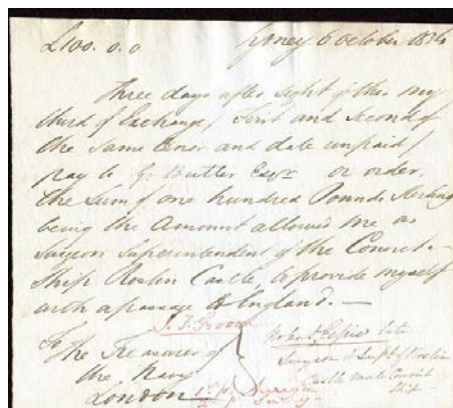 £100. 0. 0 Sydney 6 October 1834
Three days after sight of this my
third of Exchange, First and Second of
the same tenor and date unpaid
pay to G. Butler Esqre or order,
the sum of one hundred Pounds Sterling
being the Amount allowed me as
Surgeon Superintendent of the Convict
Ship Roslin Castle, to provide myself
with a passage to England. —
To
The Treasurer of
the Navy
London
Robert Espie late
Surgeon & Supt of Roslin
Castle male Convict
Ship